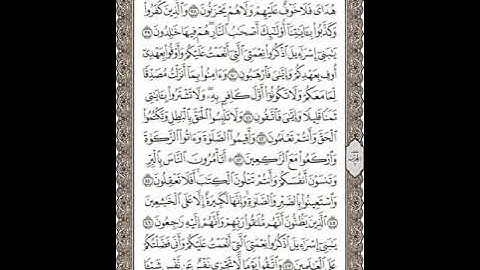 هُدَايَ فَلَا خَوْفٌ عَلَيْهِمْ وَلَا هُمْ يَحْزَنُونَ ٣٨ وَالَّذِينَ كَفَرُوا
وَكَذَّبُوا بِآيَاتِنَا أُولَٰئِكَ أَصْحَابُ النَّارِ هُمْ فِيهَا خَالِدُونَ ٣٩
يَٰبَنِي إِسْرَٰٓءِيلَ اذْكُرُوا نِعْمَتِيَ الَّتِي أَنْعَمْتُ عَلَيْكُمْ وَأَوْفُوا بِعَهْدِي
أُوفِ بِعَهْدِكُمْ وَإِيَّٰيَ فَارْهَبُونِ ٤٠ وَءَامِنُوا بِمَا أَنزَلْتُ مُصَدِّقًا
لِّمَا مَعَكُمْ وَلَا تَكُونُوا أَوَّلَ كَافِرٍ بِهِ وَلَا تَشْتَرُوا بِـَٔايَٰتِي
ثَمَنًا قَلِيلًا وَإِيَّٰيَ فَاتَّقُونِ ٤١ وَلَا تَلْبِسُوا الْحَقَّ بِالْبَٰطِلِ وَتَكْتُمُوا
الْحَقَّ وَأَنتُمْ تَعْلَمُونَ ٤٢ وَأَقِيمُوا الصَّلَوٰةَ وَءَاتُوا الزَّكَوٰةَ
وَارْكَعُوا مَعَ الرَّٰكِعِينَ ٤٣ أَتَأْمُرُونَ النَّاسَ بِالْبِرِّ
وَتَنسَوْنَ أَنفُسَكُمْ وَأَنتُمْ تَتْلُونَ الْكِتَٰبَ أَفَلَا تَعْقِلُونَ ٤٤
وَاسْتَعِينُوا بِالصَّبْرِ وَالصَّلَوٰةِ وَإِنَّهَا لَكَبِيرَةٌ إِلَّا عَلَى الْخَٰشِعِينَ
٤٥ الَّذِينَ يَظُنُّونَ أَنَّهُم مُّلَٰقُوا رَبِّهِمْ وَأَنَّهُمْ إِلَيْهِ رَٰجِعُونَ ٤٦
يَٰبَنِي إِسْرَٰٓءِيلَ اذْكُرُوا نِعْمَتِيَ الَّتِي أَنْعَمْتُ عَلَيْكُمْ وَأَنِّي فَضَّلْتُكُمْ
عَلَى الْعَٰلَمِينَ ٤٧ وَاتَّقُوا يَوْمًا لَّا تَجْزِي نَفْسٌ عَن نَّفْسٍ شَيْـًٔا